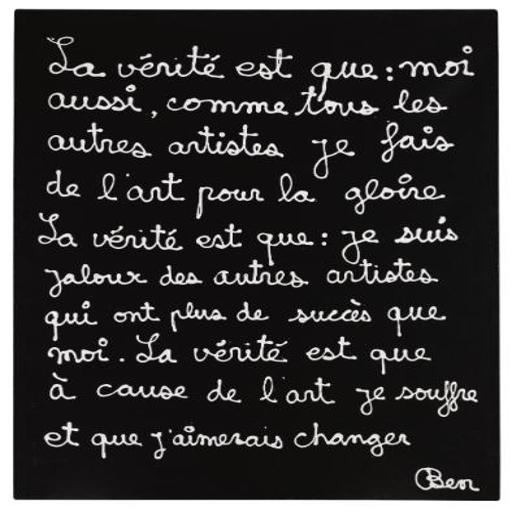 La vérité est que : moi
aussi, comme tous les
autres artistes je fais
de l'art pour la gloire
La vérité est que : je suis
jaloux des autres artistes
qui ont plus de succès que
moi. La vérité est que
à cause de l'art je souffre
et que j'aimerais changer
Ben